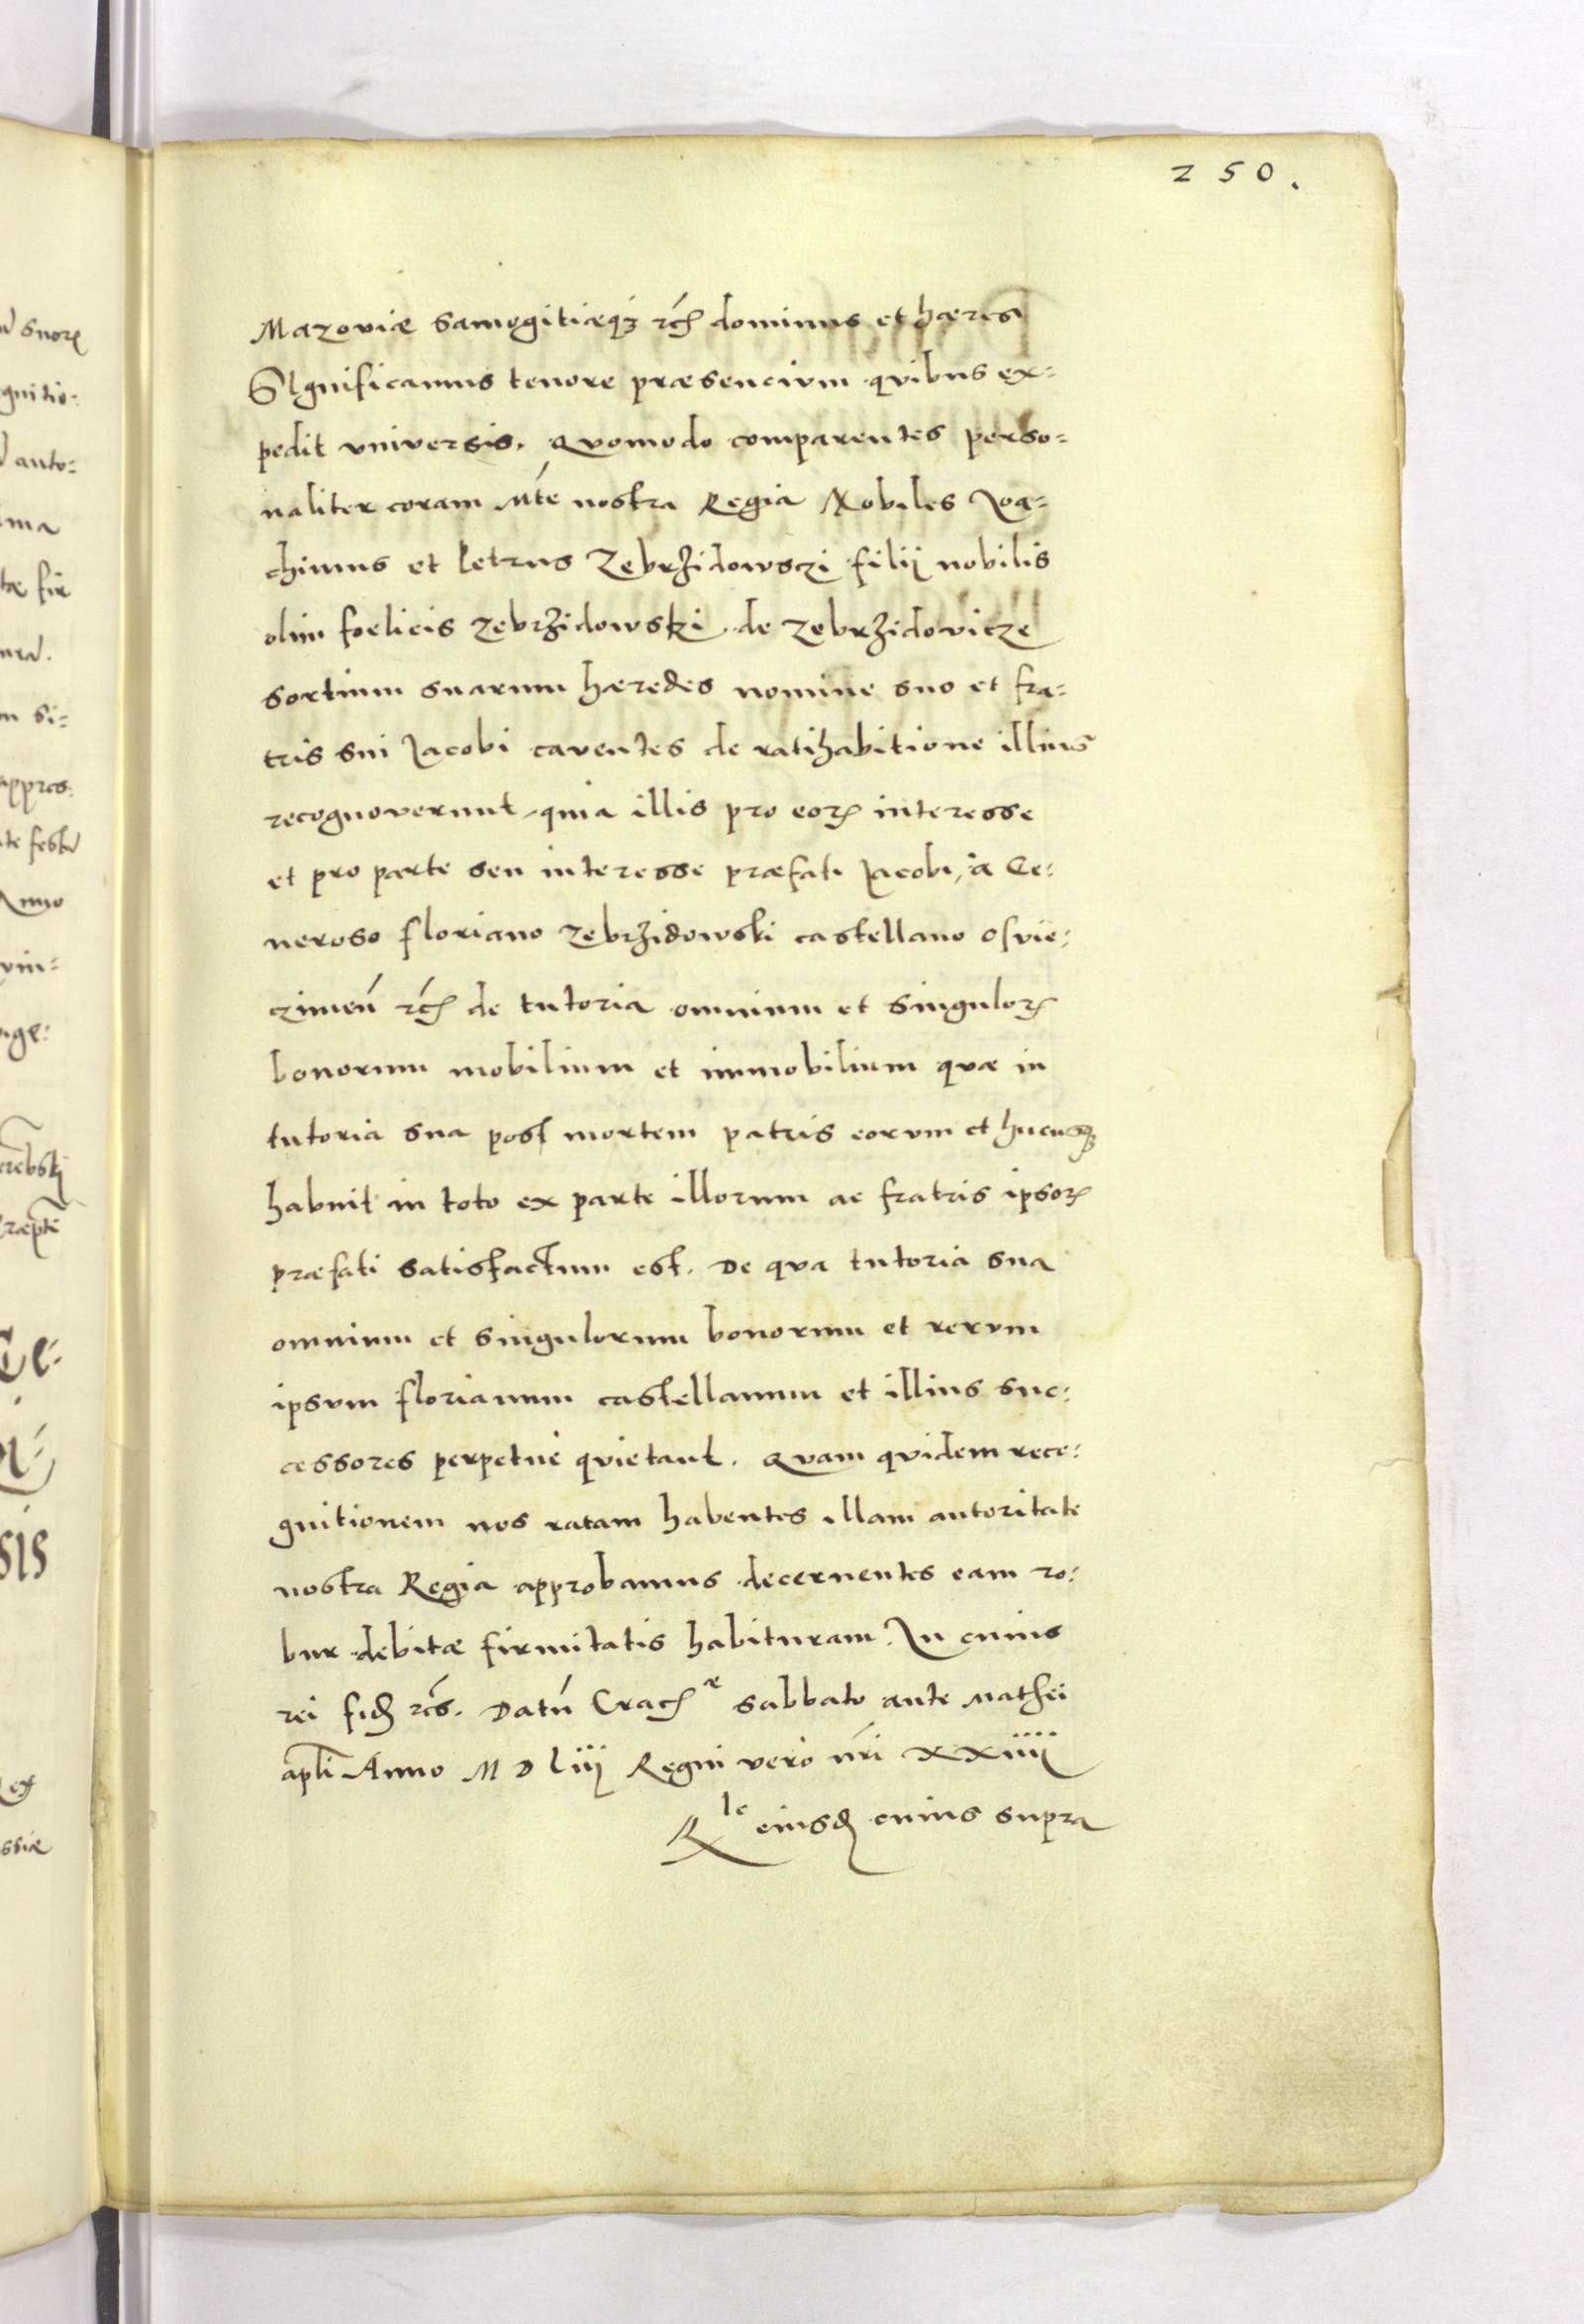 250.
Mazoviæ Samogitiæqꝫ rc̃ dominus et hæres
SIgnificamus tenore præsencivm qvibus ex=
pedit vniversis. Qvomodo comparentes perso=
naliter coram Mte nostra Regia Nobiles Ioa=
chimus et Petrus Zebrzidowsczi filij nobilis
olim foelicis Zebrzidowski de Zebrzidovicze
sortium suarum hæredes nomine suo et fra=
tris sui Iacobi caventes de ratihabitione illius
recognoverunt, quia illis pro eorꝝ interesse
et pro parte seu interesse præfati Iacobi, à Ge=
neroso floriano Zebrzidowski castellano Osvie=
czimen̄ rc̃ de tutoria omnium et singulorꝝ
bonorum mobilium et immobilium quæ in
tutoria sua post mortem patris eorvm et hucusqꝫ
habuit in toto ex parte illorum ac fratris ipsorꝝ
præfati satisfactum est. De qva tutoria sua
omnium et singulorum bonorum et rervm
ipsvm florianum castellanum et illius suc=
cessores perpetuè qvietant. Qvam qvidem reco=
gnitionem nos ratam habentes illam autoritate
nostra Regia approbamus decernentes eam ro=
bur debitæ firmitatis habituram. In cuius
rei fid rc̃s. Datū Crac æ sabbato ante Mathei
apli Anno M D liij Regni vero nr̄i XXiiij
R le eiusd cuius supra